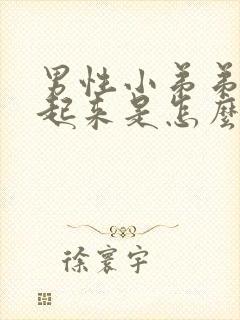 男性小弟弟
起来是怎麼
徐寰宇